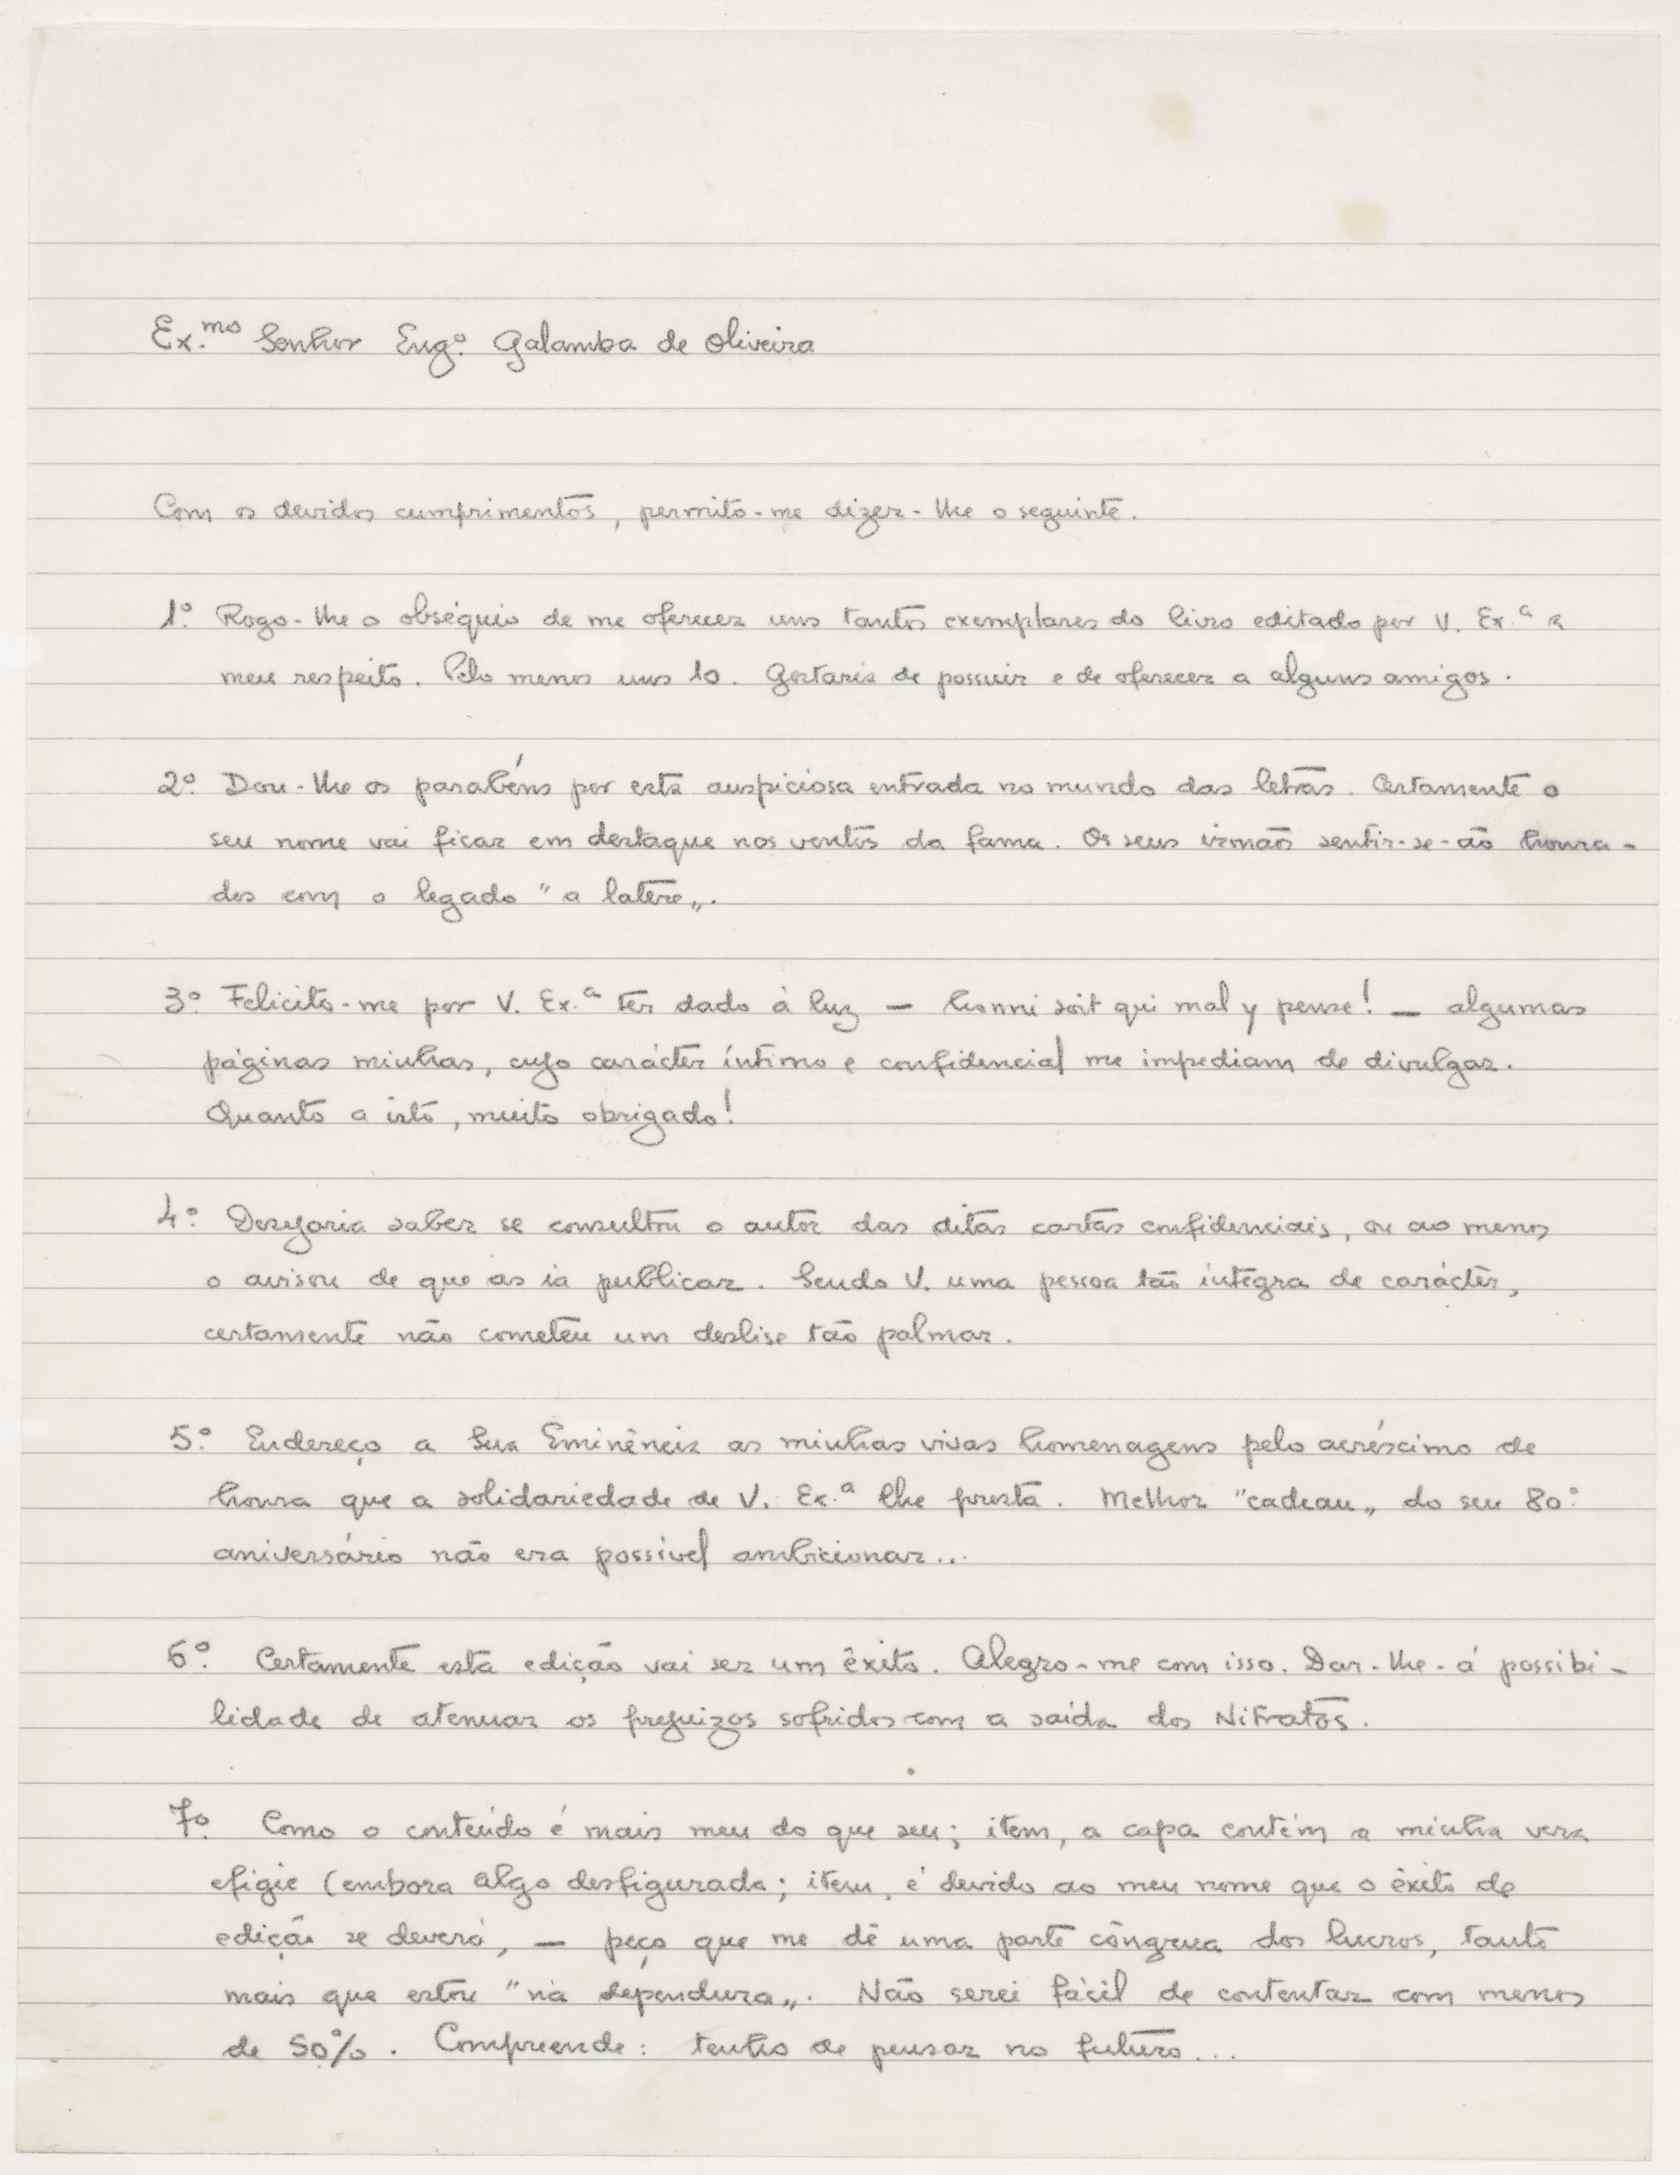 Ex.mo Senhor Eng.º Galamba de Oliveira
Com os devidos cumprimentos, permito-me dizer-lhe o seguinte.
1.º Rogo-lhe o obséquio de me oferecer uns tantos exemplares do livro editado por V. Ex.ª a
meu respeito. Pelo menos uns 10. Gostaria de possuir e de oferecer a alguns amigos.
2.º Dou-lhe os parabéns por esta auspiciosa entrada no mundo das letras. Certamente o
seu nome vai ficar em destaque nos ventos da fama. Os seus irmãos sentir-se-ão honra-
dos com o legado "a latere„.
3.º Felicito-me por V. Ex.ª ter dado à luz — honni soit qui mal y pense! — algumas
páginas minhas, cujo carácter íntimo e confidencial me impediam de divulgar.
Quanto a isto, muito obrigado!
4.º Desejaria saber se consultou o autor das ditas cartas confidenciais, ou ao menos
o avisou de que as ia publicar. Sendo V. uma pessoa tão íntegra de carácter,
certamente não cometeu um deslise tão palmar.
5.º Endereço a Sua Eminência as minhas vivas homenagens pelo acréscimo de
honra que a solidariedade de V. Ex.ª lhe presta. Melhor "cadeau„ do seu 80º
aniversário não era possível ambicionar...
6.º Certamente esta edição vai ser um êxito. Alegro-me com isso. Dar-lhe-á possibi-
lidade de atenuar os prejuizos sofridos com a saída dos Nitratos.
7.º Como o conteúdo é mais meu do que seu; item, a capa contém a minha vera
efigie (embora algo desfigurada; item, é devido ao meu nome que o êxito de
edição se deverá, — peço que me dê uma parte côngrua dos lucros, tanto
mais que estou "na dependura„. Não serei fácil de contentar com menos
de 50%. Compreende: tenho de pensar no futuro...